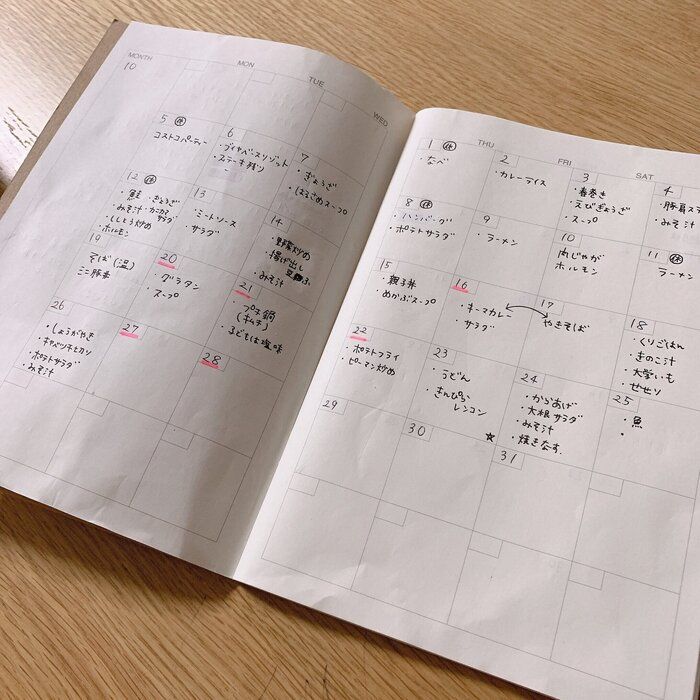 MONTH
10
MON
TUE
WED
5 休
コストコパーティー
6
・ブイヤベースリゾット
・ステーキ残り
7
・ぎょうざ
・はるさめスープ
12 休
・鮭 ・ぎょうざ
・みそ汁 ・カニカマサラダ
・ししとう炒め
・ホルモン
13
・ミートソース
・サラダ
14
・野菜炒め
・揚げ出し
・みそ汁
19
そば(温)
ミニ豚丼
20
・グラタン
・スープ
21
・プチ鍋
(キムチ)
・子どもは塩味
26
・しょうがやき
・キャベツ千切り
・ポテトサラダ
・みそ汁
27
28
THU
FRI
SAT
1 休
・なべ
2
・カレーライス
3
・春巻き
・えびぎょうざ
・スープ
4
・みそ汁
8 休
・ハンバーグ
・ポテトサラダ
9
・ラーメン
10
肉じゃが
ホルモン
11 休
・ラーメン
15
・親子丼
・めかぶスープ
16
・キーマカレー
・サラダ
17
・やきそば
18
・くりごはん
・きのこ汁
・大学いも
・せせり
22
・ポテトフライ
・ピーマン炒め
23
・うどん
・きんぴら
レンコン
24
・からあげ
・大根サラダ
・みそ汁
・焼きなす
25
・魚
29
30
★
31